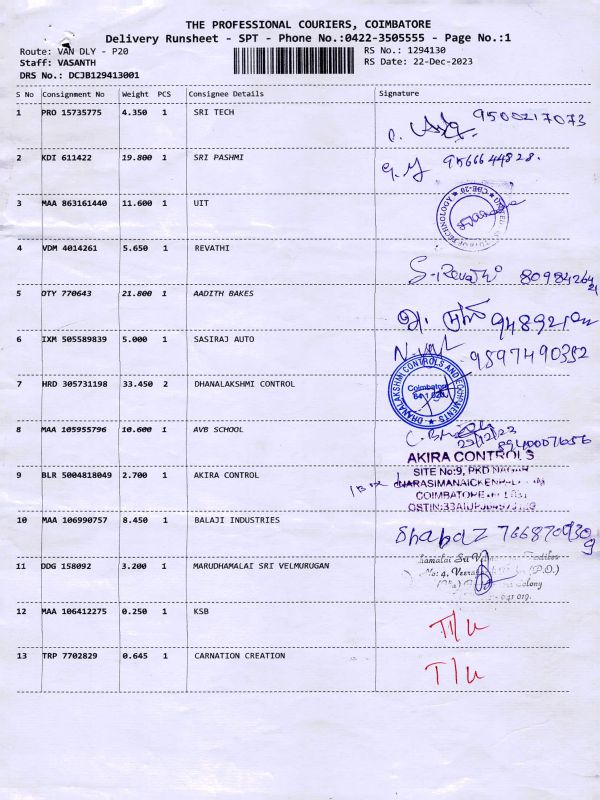 THE PROFESSIONAL COURIERS, COIMBATORE
Delivery Runsheet - SPT - Phone No.:0422-3505555 - Page No.:1
Route: VAN DLY - P20 RS No.: 1294130
Staff: VASANTH RS Date: 22-Dec-2023
DRS No.: DCJB129413001
S No Consignment No Weight PCS Consignee Details Signature
1 PRO 15735775 4.350 1 SRI TECH 9500217073
2 KDI 611422 19.800 1 SRI PASHMI 9566644828.
3 MAA 863161440 11.600 1 UIT
4 VDM 4014261 5.650 1 REVATHI S. Revathi
5 OTY 770643 21.800 1 AADITH BAKES
6 IXM 505589839 5.000 1 SASIRAJ AUTO 9597490352
7 HRD 305731198 33.450 2 DHANALAKSHMI CONTROL DHANALAKSHMI CONTROLS AND EQUIPMENTS Coimbatore
8 MAA 105955796 10.600 1 AVB SCHOOL 23/12/23 8940007656
9 BLR 5004818049 2.700 1 AKIRA CONTROL AKIRA CONTROLS
SITE No:9, PKD NAGAR
COIMBATORE
10 MAA 106990757 8.450 1 BALAJI INDUSTRIES Shabaz
11 DDG 158092 3.200 1 MARUDHAMALAI SRI VELMURUGAN
No: 4, (P.O.)
Colony
12 MAA 106412275 0.250 1 KSB T/U
13 TRP 7702829 0.645 1 CARNATION CREATION T/U